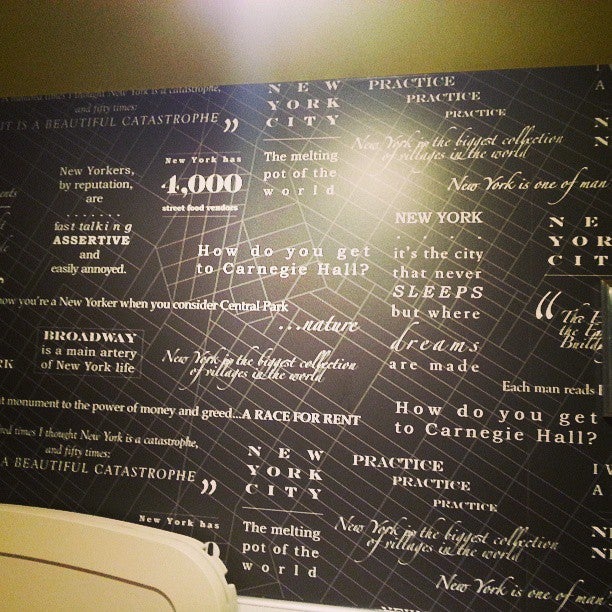 times I thought New York is a catastrophe,
and fifty times:
IT IS A BEAUTIFUL CATASTROPHE ”
New Yorkers,
by reputation,
are
fast talking
ASSERTIVE
and
easily annoyed.
New York has
4,000
street food vendors
NEW
YORK
CITY
The melting
pot of the
world
PRACTICE
PRACTICE
PRACTICE
New York is the biggest collection
of villages in the world
New York is one of man
How do you get
to Carnegie Hall?
NEW YORK
it's the city
that never
SLEEPS
but where
dreams
are made
NE
YOR
CIT
“ The E
the Em
Buildi
now you're a New Yorker when you consider Central Park
...nature
BROADWAY
is a main artery
of New York life
New York is the biggest collection
of villages in the world
Each man reads
t monument to the power of money and greed...A RACE FOR RENT
How do you get
to Carnegie Hall?
red times I thought New York is a catastrophe,
and fifty times:
A BEAUTIFUL CATASTROPHE ”
NEW
YORK
CITY
PRACTICE
PRACTICE
PRACTICE
New York has
The melting
pot of the
world
New York is the biggest collection
of villages in the world
New York is one of man